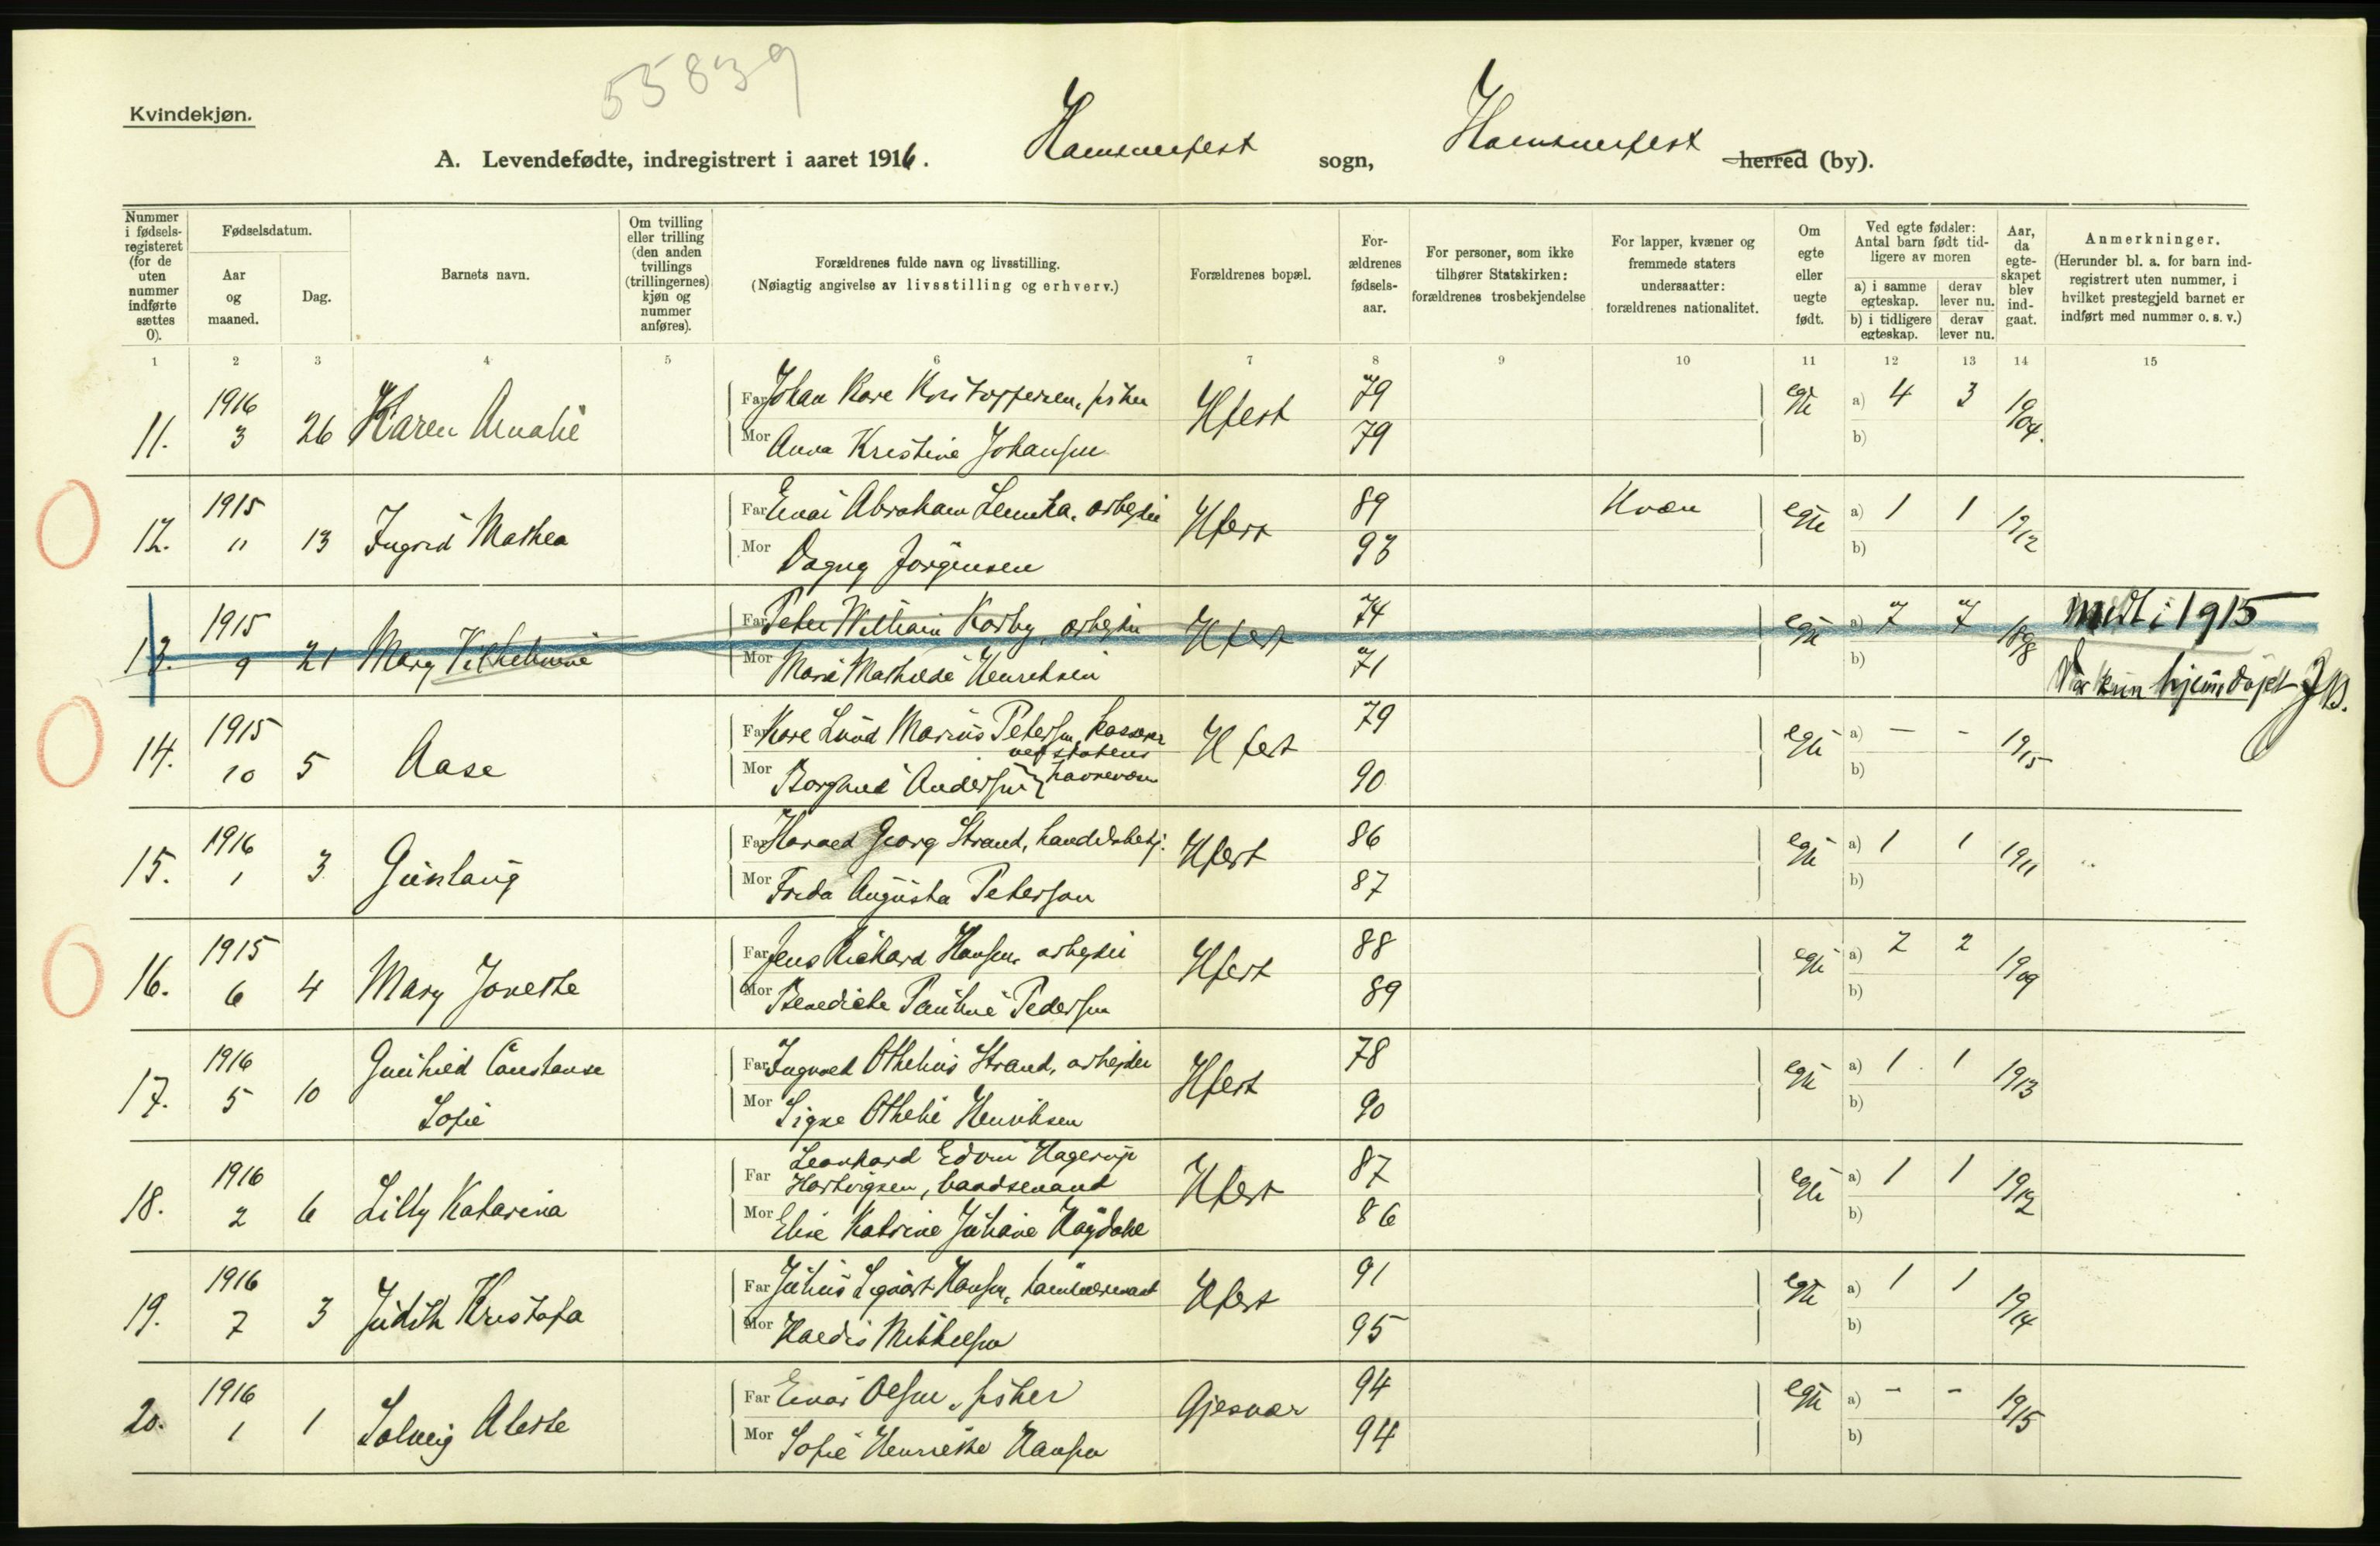 55839
Kvindekjøn.
A. Levendefødte, indregistrert i aaret 1916. Hammerfest sogn, Hammerfest herred (by).
Nummer i fødsels-registeret (for de uten nummer indførte sættes 0).
Fødselsdatum.
Aar og maaned.
Dag.
Barnets navn.
Om tvilling eller trilling (den anden tvillings (trillingernes) kjøn og nummer anføres).
Forældrenes fulde navn og livsstilling.
(Nøiagtig angivelse av livsstilling og erhverv.)
Forældrenes bopæl.
For-ældrenes fødsels-aar.
For personer, som ikke tilhører Statskirken: forældrenes trosbekjendelse
For lapper, kvæner og fremmede staters undersaatter: forældrenes nationalitet.
Om egte eller uegte født.
Ved egte fødsler: Antal barn født tid-ligere av moren
a) i samme egteskap.
derav lever nu.
b) i tidligere egteskap.
derav lever nu.
Aar, da egte-skapet blev ind-gaat.
Anmerkninger.
(Herunder bl. a. for barn ind-registrert uten nummer, i hvilket prestegjeld barnet er indført med nummer o. s. v.)
1 2 3 4 5 6 7 8 9 10 11 12 13 14 15
11. 1916 3 26 Karen Amalie
Far Johan Kare Kristoffersen, fisker Hfest 79 egte a) 4 3 1904.
Mor Anna Kristine Johansen 79 b)
12. 1915 11 13 Ingrid Mathea
Far Einar Abraham arbeider Hfest 89 Kvæn egte a) 1 1 1912
Mor Dagny Jørgensen 93 b)
13. 1915 9 21 Mary Vilhelmine
Far Peter William Korby, arbeider Hfest 74 egte a) 7 7 1898 medt i 1915
Mor Marie Mathilde Henriksen 71 b) Var kun hjemmedøpt JB.
14. 1915 10 5 Aase
Far Kare Lund Marius Petersen, kasserer ved statens havnevæsen Hfest 79 egte a) - - 1915
Mor Borghild Andersen 90 b)
15. 1916 1 3 Gunlaug
Far Harald Georg Strand, handelsbetj. Hfest 86 egte a) 1 1 1911
Mor Frida Augusta Peterson 87 b)
16. 1915 6 4 Mary Jonette
Far Jens Rickard Hansen, arbeider Hfest 88 egte a) 2 2 1909
Mor Benedicte Pauline Pedersen 89 b)
17. 1916 5 10 Gunhild Constanse Sofie
Far Ingvald Othelius Strand, arbeider Hfest 78 egte a) 1 1 1913
Mor Signe Othelie Henriksen 90 b)
18. 1916 2 6 Lilly Katarina
Far Leonhard Edvin Hagerup Hartvigsen, baadsmand Hfest 87 egte a) 1 1 1912
Mor Elise Katrine Juliane Haugdahl 86 b)
19. 1916 7 3 Judith Kristofa
Far Julius Sigvart Hansen, Hfest 91 egte a) 1 1 1914
Mor Haldis Mikkelsen 95 b)
20. 1916 1 1 Solveig Alette
Far Einar Olsen, fisker Gjesvær 94 egte a) - - 1915
Mor Sofie Henriette Hansen 94 b)